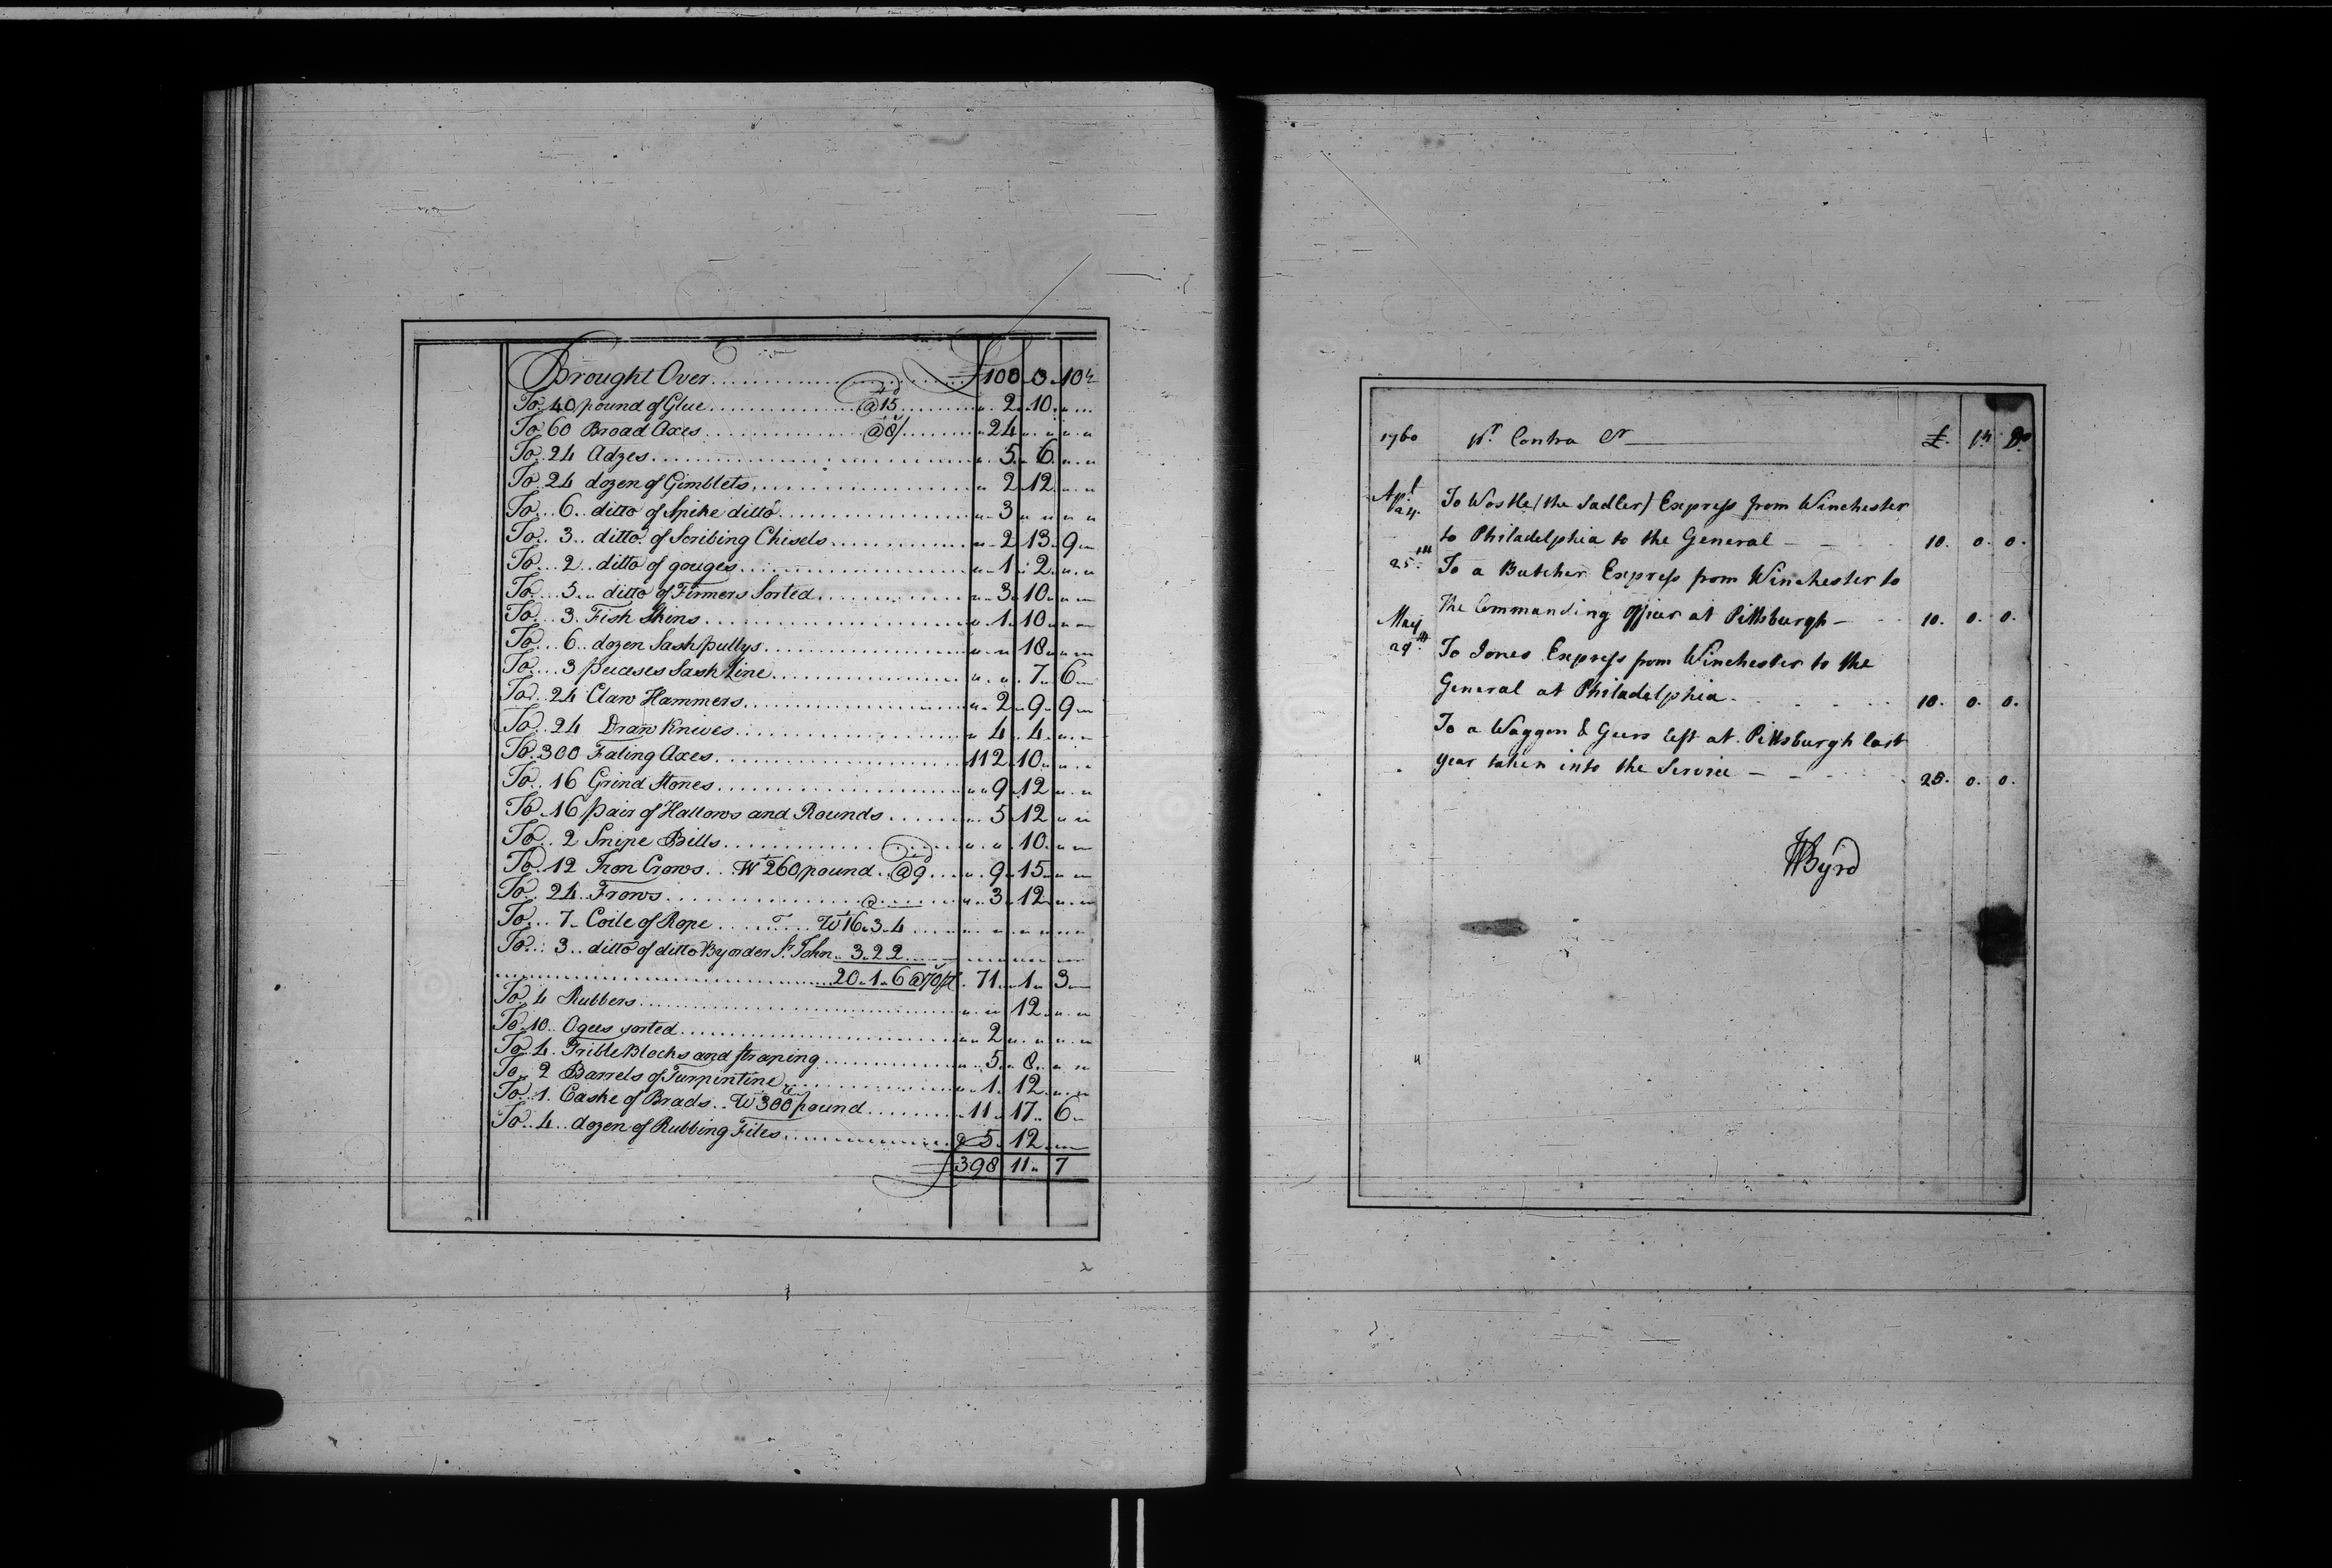 Brought Over £ 100 " 3 " 10½
To 40 pound of Glue @ 15d " 2 " 10 " "
To 60 Broad Axes @ 8/ " 24 " " " "
To 24 Adzes " 5 " 6 " "
To 24 dozen of Gimblets " 2 12 " "
To 6 ditto of Spike ditto " 3 " " " "
To 3 ditto of Scribing Chisels " 2 13 9 "
To 2 ditto of gouges " 1 " 2 " "
To 5 ditto of Firmers Sorted " 3 10 " "
To 3 Fish Skins " 1 10 " "
To 6 dozen Sash pullys " " 18 " "
To 3 peceses Sash Line " " 7 " 6
To 24 Claw Hammers " 2 " 9 " 9
To 24 Draw Knives " 4 " 4 " "
To 300 Faling Axes 112 10 " "
To 16 Grind Stones " 9 12 " "
To 16 pair of Hallows and Rounds " 5 12 " "
To 2 Snipe Bills " " 10 " "
To 12 Iron Crows Wt 260 pound @ 9d " 9 15 " "
To 24 Frows @ " 3 12 " "
To 7 Coile of Rope Wt 16 " 3 " 4
To 3 ditto of ditto By order St. John 3 " 2 2
20 " 1 " 6 @ 70/ 71 " 1 " 3
To 4 Rubbers " " 12 " "
To 10 Ogees sorted " 2 " " " "
To 4 Trible Blocks and straping " 5 " 8 " "
To 2 Barrels of Turpintine " 1 " 12 " "
To 1 Caske of Brads Wt 300 pound 11 " 17 " 6
To 4 dozen of Rubbing Files 5 12 " "
£ 398 11 " 7
1760 Pr Contra Cr £. Sh. D.
Apl
24 To Wostle/the Sadler/Express from Winchester
to Philadelphia to the General — 10. 0. 0.
25th To a Butcher Express from Winchester to
the Commanding Officer at Pittsburgh — 10. 0. 0.
May
29th To Jones Express from Winchester to the
General at Philadelphia 10. 0. 0.
To a Waggon & Geers left at Pittsburgh last
year taken into the Service — 25. 0. 0.
WByrd